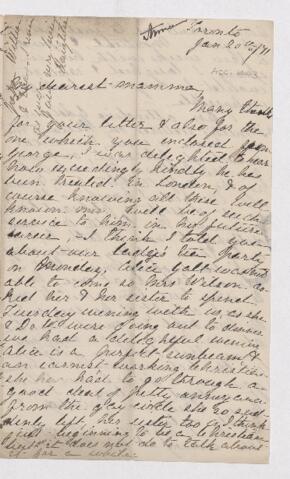 Toronto
Jan 20th/71
My dearest mamma,
Many thanks
for your letter & also for the
one which you enclosed from
George, I was delighted to hear
how exceedingly kindly he has
been treated in London, & of
course knowing all these well
known men will be of such
service to him in his future
career, I think I told you
about our ladies tea party
on Monday, Alice Galt was not
able to come so Mrs Wilson as
ked her & her sister to spend
Tuesday evening with us, as she
& Do were going out to dinner
we had a delightful evening
Alice is a perfect sunbeam &
an earnest working christian
she has had to go through a
good deal of petty annoyance
from the gay circle she so sud
denly left, her sister too I think
is just beginning to be a christian
but it does not do to talk about
it for a while.